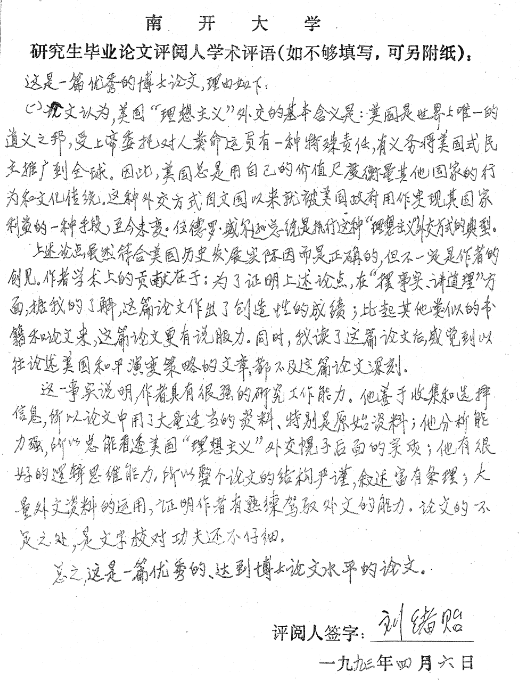 南开大学
研究生毕业论文评阅人学术评语(如不够填写，可另附纸)：
这是一篇优秀的博士论文，理由如下：
(一)论文认为，美国“理想主义”外交的基本含义是：美国是世界上唯一的
道义之邦，受上帝委托对人类命运负有一种特殊责任，有义务将美国式民
主推广到全球。因此，美国总是用自己的价值尺度衡量其他国家的行
为和文化传统，这种外交方式自立国以来就被美国政府用作实现其国家
利益的一种手段，至今未变。伍德罗·威尔逊总统是推行这种“理想主义”外交方式的典型。
上述论点虽然符合美国历史发展实际因而是正确的，但不一定是作者的
创见。作者学术上的贡献在于：为了证明上述论点，在“摆事实、讲道理”方
面，据我的了解，这篇论文作出了创造性的成绩；比起其他类似的书
籍和论文来，这篇论文更有说服力。同时，我读了这篇论文后感觉到以
往论述美国和平演变策略的文章，都不及这篇论文深刻。
这一事实说明，作者具有很强的研究工作能力。他善于收集和选择
信息，所以论文中用了大量适当的资料、特别是原始资料；他分析能
力强，所以总能看透美国“理想主义”外交幌子后面的实质；他有很
好的逻辑思维能力，所以整个论文的结构严谨，叙述富有条理；大
量外文资料的运用，证明作者有熟练驾驭外文的能力。论文的不
足之处，是文字校对功夫还不仔细。
总之，这是一篇优秀的、达到博士论文水平的论文。
评阅人签字：刘绪贻
一九九三年四月六日